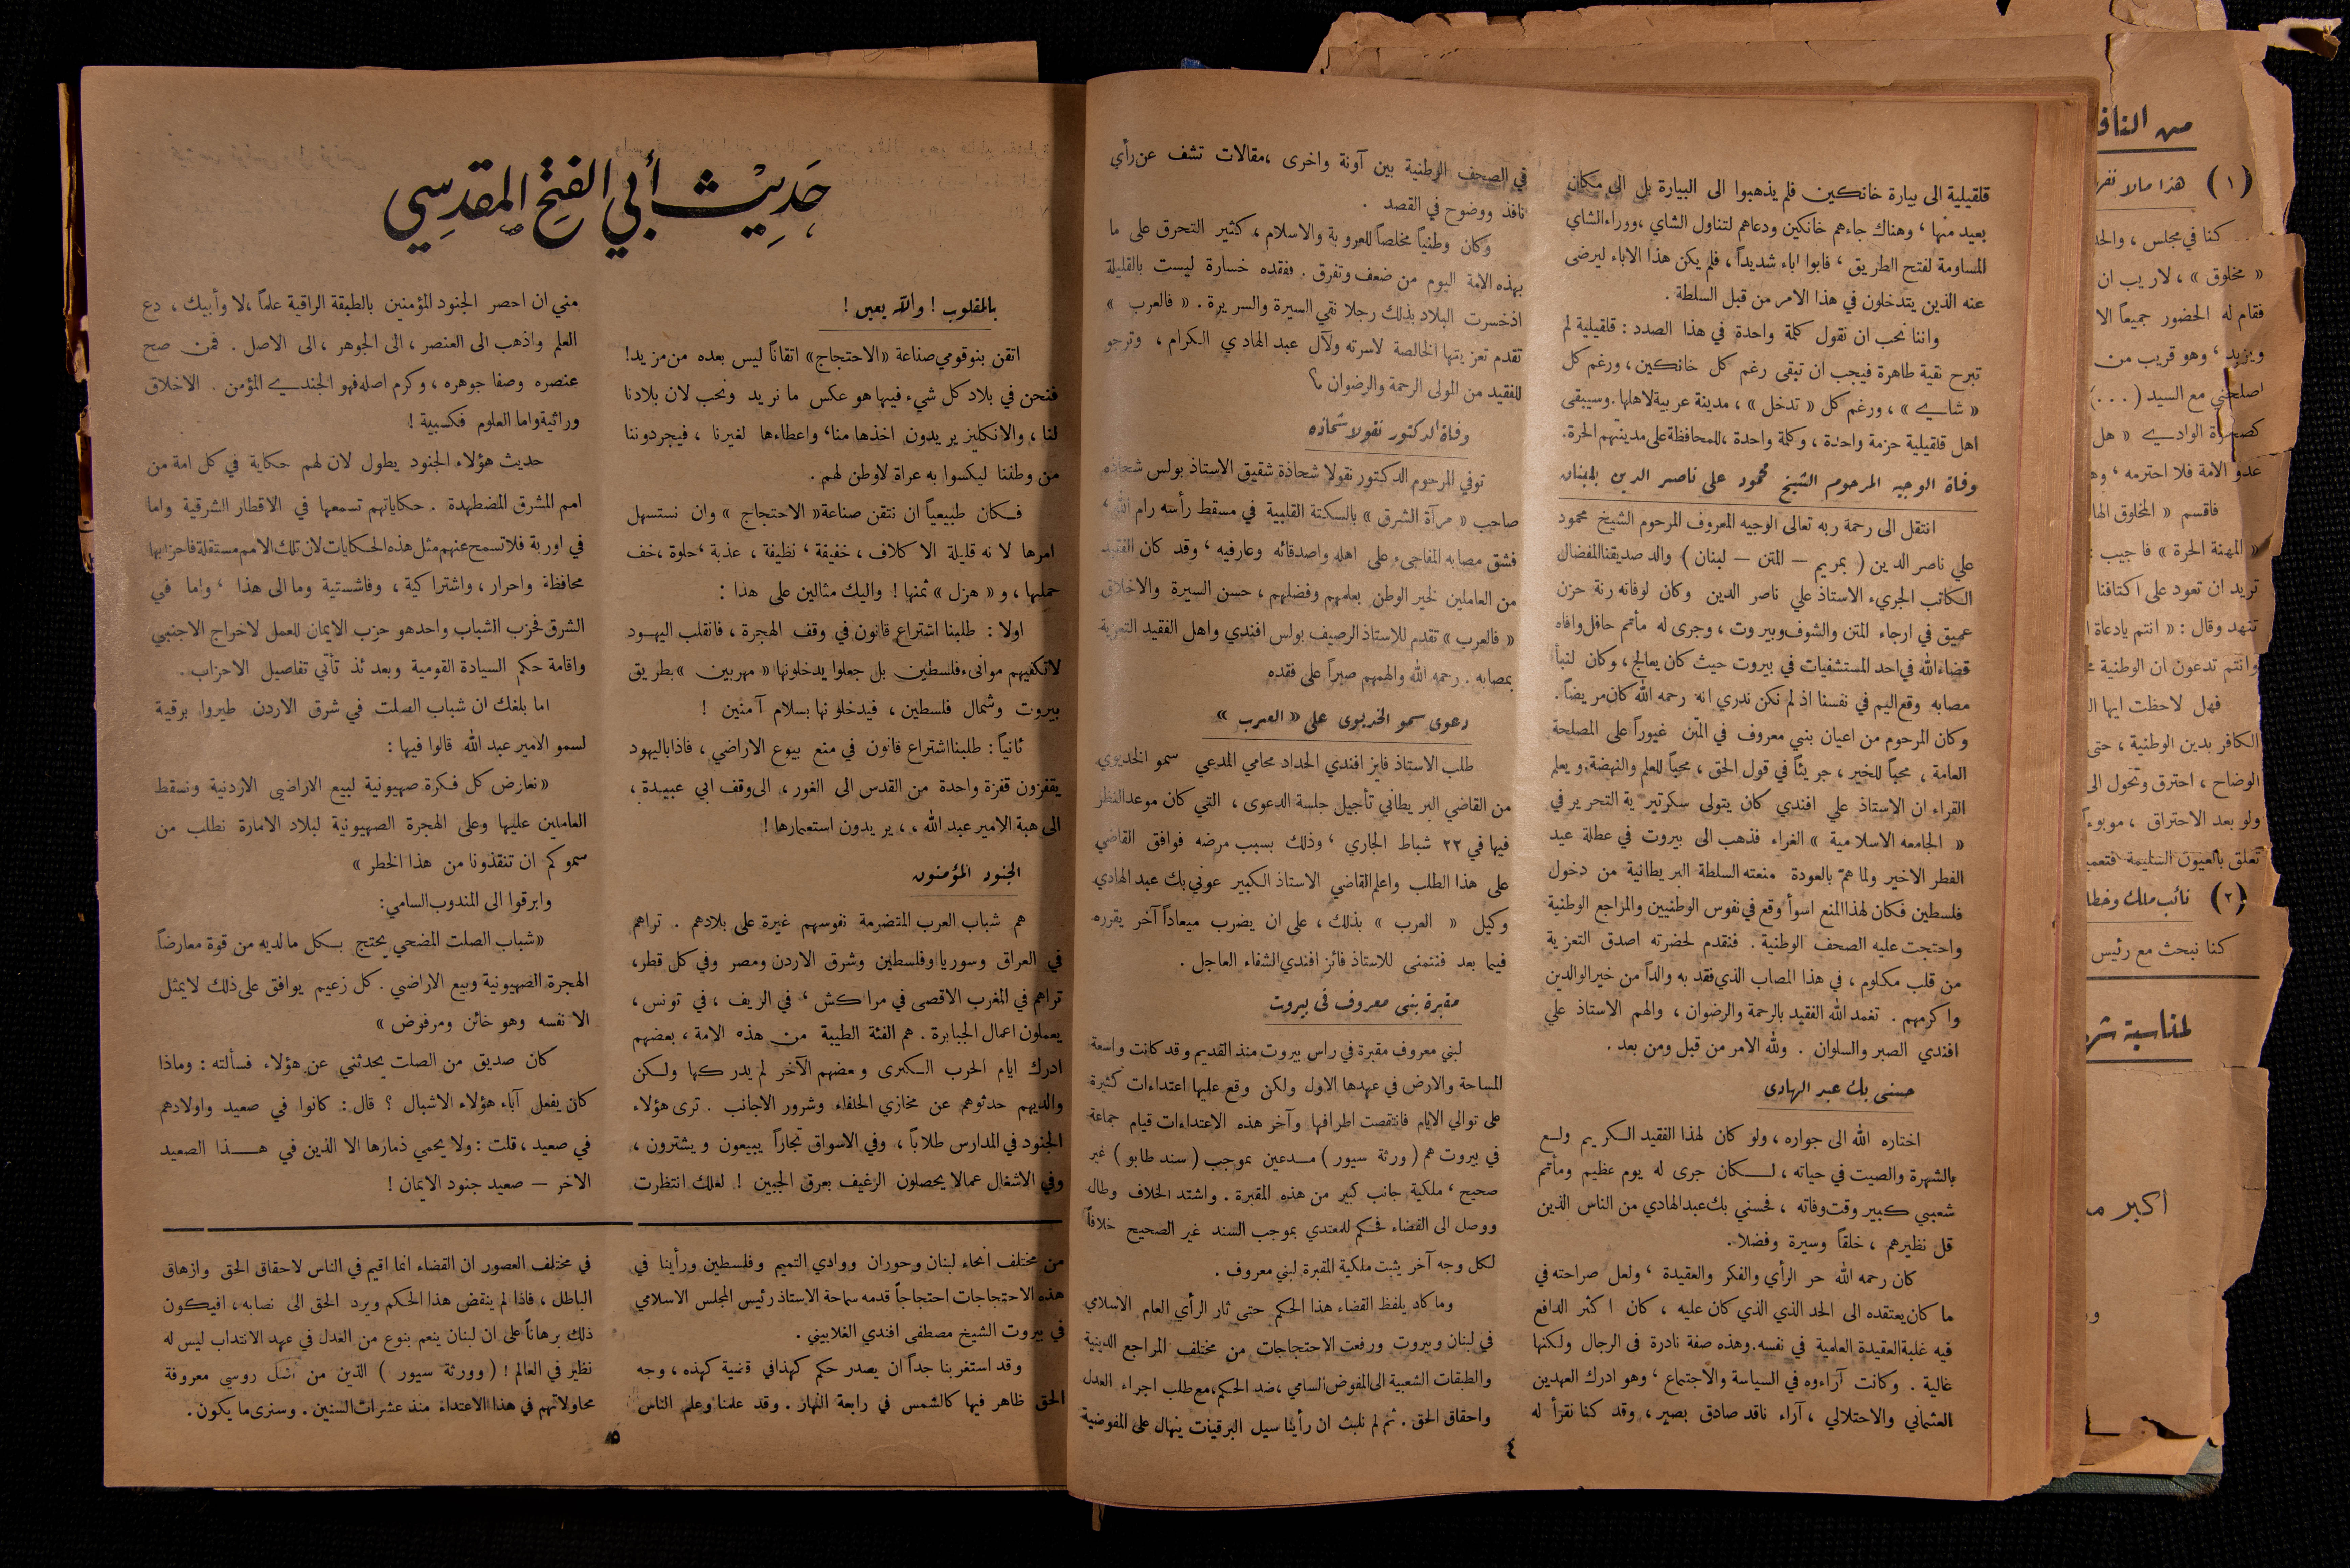 قلقيلية الى بيارة خانكين فلم يذهبوا الى البيارة بل الى مكان
بعيد منها ، وهناك جاءهم خانكين ودعاهم لتناول الشاي ، ووراء الشاي
المساومة لفتح الطريق ، فابوا اباء شديداً ، فلم يكن هذا الاباء ليرضى
عنه الذين يتدخلون في هذا الامر من قبل السلطة .
واننا نحب ان نقول كلمة واحدة في هذا الصدد : قلقيلية لم
تبرح نقية طاهرة فيجب ان تبقى رغم كل خانكين ، ورغم كل
« شاي » ، ورغم كل « تدخل » ، مدينة عربية لاهلها . وسيبقى
اهل قلقيلية حزمة واحدة ، وكلمة واحدة ، للمحافظة على مدينتهم الحرة.
وفاة الوجيه المرحوم الشيخ محمود علي ناصر الدين بلبنان
انتقل الى رحمة ربه تعالى الوجيه المعروف المرحوم الشيخ محمود
علي ناصر الدين ( بمريم — المتن — لبنان ) والد صديقنا المفضال
الكاتب الجريء الاستاذ علي ناصر الدين وكان لوفاته رنة حزن
عميق في ارجاء المتن والشوف وبيروت ، وجرى له مأتم حافل وافاه
قضاء الله في احد المستشفيات في بيروت حيث كان يعالج ، وكان لنبأ
مصابه وقع اليم في نفسنا اذ لم نكن ندري انه رحمه الله كان مريضاً .
وكان المرحوم من اعيان بني معروف في المتن غيوراً على المصلحة
العامة ، محباً للخير ، جريئاً في قول الحق ، محباً للعلم والنهضة ، ويعلم
القراء ان الاستاذ علي افندي كان يتولى سكرتيرية التحرير في
« الجامعه الاسلامية » الغراء فذهب الى بيروت في عطلة عيد
الفطر الاخير ولما همّ بالعودة منعته السلطة البريطانية من دخول
فلسطين فكان لهذا المنع اسوأ وقع في نفوس الوطنيين والمراجع الوطنية
واحتجت عليه الصحف الوطنية . فنقدم لحضرته اصدق التعزية
من قلب مكلوم ، في هذا المصاب الذي فقد به والداً من خير الوالدين
واكرمهم . تغمد الله الفقيد بالرحمة والرضوان ، والهم الاستاذ علي
افندي الصبر والسلوان . ولله الامر من قبل ومن بعد .
حسني بك عبد الهادي
اختاره الله الى جواره ، ولو كان لهذا الفقيد الكريم ولع
بالشهرة والصيت في حياته ، لكان جرى له يوم عظيم ومأتم
شعبي كبير وقت وفاته ، فحسني بك عبد الهادي من الناس الذين
قل نظيرهم ، خلقاً وسيرة وفضلا .
كان رحمه الله حر الرأي والفكر والعقيدة ، ولعل صراحته في
ما كان يعتقده الى الحد الذي الذي كان عليه ، كان اكثر الدافع
فيه غلبة العقيدة العلمية في نفسه . وهذه صفة نادرة في الرجال ولكنها
غالية . وكانت آراءوه في السياسة والاجتماع ، وهو ادرك العهدين
العثماني والاحتلالي ، آراء ناقد صادق بصير ، وقد كنا نقرأ له
في الصحف الوطنية بين آونة واخرى ، مقالات تشف عن رأي
نافذ ووضوح في القصد .
وكان وطنياً مخلصاً للعروبة والاسلام ، كثير التحرق على ما
بهذه الامة اليوم من ضعف وتفرق . ففقده خسارة ليست بالقليلة
اذ خسرت البلاد بذلك رجلا نقي السيرة والسريرة . « فالعرب »
تقدم تعزيتها الخالصة لاسرته ولآل عبد الهادي الكرام ، وترجو
للفقيد من المولى الرحمة والرضوان
وفاة الدكتور نقولا شحاذه
توفي المرحوم الدكتور نقولا شحاذة شقيق الاستاذ بولس شحاذه
صاحب « مرآة الشرق » بالسكتة القلبية في مسقط رأسه رام الله ،
فشق مصابه المفاجىء على اهله واصدقائه وعارفيه ، وقد كان الفقيد
من العاملين لخير الوطن بعلمهم وفضلهم ، حسن السيرة والاخلاق
« فالعرب » تقدم للاستاذ الرصيف بولس افندي واهل الفقيد التعزية
بمصابه . رحمه الله والهمهم صبراً على فقده
دعوى سمو الخديوي على « العرب »
طلب الاستاذ فايز افندي الحداد محامي المدعي سمو الخديوي
من القاضي البريطاني تأجيل جلسة الدعوى ، التي كان موعد النظر
فيها في ٢٢ شباط الجاري ، وذلك بسبب مرضه فوافق القاضي
على هذا الطلب واعلم القاضي الاستاذ الكبير عوني بك عبد الهادي
وكيل « العرب » بذلك ، على ان يضرب ميعاداً آخر يقرره
فيما بعد فنتمنى للاستاذ فائز افندي الشفاء العاجل .
مقبرة بني معروف في بيروت
لبني معروف مقبرة في راس بيروت منذ القديم وقد كانت واسعة
المساحة والارض في عهدها الاول ولكن وقع عليها اعتداءات كثيرة
على توالي الايام فانتقصت اطرافها وآخر هذه الاعتداءات قيام جماعة
في بيروت هم ( ورثة سيور ) مدعين بموجب ( سند طابو ) غير
صحيح ، ملكية جانب كبير من هذه المقبرة . واشتد الخلاف وطال
ووصل الى القضاء فحكم للمعتدي بموجب السند غير الصحيح خلافاً
لكل وجه آخر يثبت ملكية المقبرة لبني معروف .
وما كاد يلفظ القضاء هذا الحكم حتى ثار الرأي العام الاسلامي
في لبنان وبيروت ورفعت الاحتجاجات من مختلف المراجع الدينية
والطبقات الشعبية الى المفوض السامي ، ضد الحكم ، مع طلب اجراء العدل
واحقاق الحق . ثم لم نلبث ان رأينا سيل البرقيات ينهال على المفوضية
٤
حَدِيْث أَبي الفَتْح المَقدِسِي
بالمقلوب ! والله يعين !
اتقن بنو قومي صناعة « الاحتجاج » اتقاناً ليس بعده من مزيد !
فنحن في بلاد كل شيء فيها هو عكس ما نريد ونحب لان بلادنا
لنا ، والانكليز يريدون اخذها منا ، واعطاءها لغيرنا ، فيجردوننا
من وطننا ليكسوا به عراة لاوطن لهم .
فكان طبيعياً ان نتقن صناعة « الاحتجاج » وان نستسهل
امرها لانه قليلة الاكلاف ، خفيفة ، نظيفة ، عذبة ، حلوة ، خف
حملها ، و « هزل » ثمنها ! واليك مثالين على هذا :
اولا : طلبنا اشتراع قانون في وقف الهجرة ، فانقلب اليهود
لاتكفيهم موانىء فلسطين بل جعلوا يدخلونها « مهربين » بطريق
بيروت وشمال فلسطين ، فيدخلونها بسلام آمنين !
ثانياً : طلبنا اشتراع قانون في منع بيوع الاراضي ، فاذا باليهود
يقفزون قفزة واحدة من القدس الى الغور ، الى وقف ابي عبيدة ،
الى هبة الامير عبد الله ، ، يريدون استعمارها !
الجنود المؤمنون
هم شباب العرب المتضرمة نفوسهم غيرة على بلادهم . تراهم
في العراق وسوريا وفلسطين وشرق الاردن ومصر وفي كل قطر ،
تراهم في المغرب الاقصى في مراكش ، في الريف ، في تونس ،
يعملون اعمال الجبابرة . هم الفئة الطيبة من هذه الامة ، بعضهم
ادرك ايام الحرب الكبرى وبعضهم الآخر لم يدركها ولكن
والديهم حدثوهم عن مخازي الحلفاء وشرور الاجانب . ترى هؤلاء
الجنود في المدارس طلاباً ، وفي الاسواق تجاراً يبيعون ويشترون ،
وفي الاشغال عمالا يحصلون الرغيف بعرق الجبين ! لعلك انتظرت
مني ان احصر الجنود المؤمنين بالطبقة الراقية علماً ، لا وأبيك ، دع
العلم واذهب الى العنصر ، الى الجوهر ، الى الاصل . فمن صح
عنصره وصفا جوهره ، وكرم اصله فهو الجندي المؤمن . الاخلاق
وراثية واما العلوم فكسبية !
حديث هؤلاء الجنود يطول لان لهم حكاية في كل امة من
امم المشرق المضطهدة . حكاياتهم تسمعها في الاقطار الشرقية واما
في اوربة فلا تسمع عنهم مثل هذه الحكايات لان تلك الامم مستقلة فاحزابها
محافظة واحرار ، واشتراكية ، وفاشستية وما الى هذا ، واما في
الشرق فحزب الشباب واحد هو حزب الايمان للعمل لاخراج الاجنبي
واقامة حكم السيادة القومية وبعدئذ تأتي تفاصيل الاحزاب .
اما بلغك ان شباب الصلت في شرق الاردن طيروا برقية
لسمو الامير عبد الله قالوا فيها :
« نعارض كل فكرة صهيونية لبيع الاراضي الاردنية ونسقط
العاملين عليها وعلى الهجرة الصهيونية لبلاد الامارة نطلب من
سموكم ان تنقذونا من هذا الخطر »
وابرقوا الى المندوب السامي :
« شباب الصلت المضحي يحتج بكل ما لديه من قوة معارضاً
الهجرة الصهيونية وبيع الاراضي . كل زعيم يوافق على ذلك لايمثل
الا نفسه وهو خائن ومرفوض »
كان صديق من الصلت يحدثني عن هؤلاء فسألته : وماذا
كان يفعل آباء هؤلاء الاشبال ؟ قال : كانوا في صعيد واولادهم
في صعيد ، قلت : ولا يحمي ذمارها الا الذين في هذا الصعيد
الاخر — صعيد جنود الايمان !
من مختلف انحاء لبنان وحوران ووادي التميم وفلسطين ورأينا في
هذه الاحتجاجات احتجاجاً قدمه سماحة الاستاذ رئيس المجلس الاسلامي
في بيروت الشيخ مصطفى افندي الغلاييني .
وقد استغربنا جداً ان يصدر حكم كهذا في قضية كهذه ، وجه
الحق ظاهر فيها كالشمس في رابعة النهار . وقد علمنا وعلم الناس
في مختلف العصور ان القضاء انما اقيم في الناس لاحقاق الحق وازهاق
الباطل ، فاذا لم ينقض هذا الحكم ويرد الحق الى نصابه ، افيكون
ذلك برهاناً على ان لبنان ينعم بنوع من العدل في عهد الانتداب ليس له
نظير في العالم ! ( وورثة سيور ) الذين من روسي معروفة
محاولاتهم في هذا الاعتداء منذ عشرات السنين . وسنرى ما يكون .
٥
من
( ١ ) هذا مالا
كنا في مجلس ،
« مخلوق » ، لاريب ان
فقام له الحضور جميعاً الا
ويزيد ، وهو قريب من
مع السيد ( ... )
الوادي « هل
عدو الامة فلا احترمه ،
فاقسم « المخلوق
« المهنة الحرة » فاجيب :
تريد ان تعود على اكتافنا
تنهد وقال : « انتم يادعاة
وانتم تدعون ان الوطنية
فهل لاحظت ايها
الكافر بدين الوطنية ، حتى
الوضاح ، احترق وتحول الى
ولو بعد الاحتراق ،
تعلق بالعيون السليمة
( ٢ ) نائب ملك
كنا نبحث مع رئيس
لمناسبة
اكبر